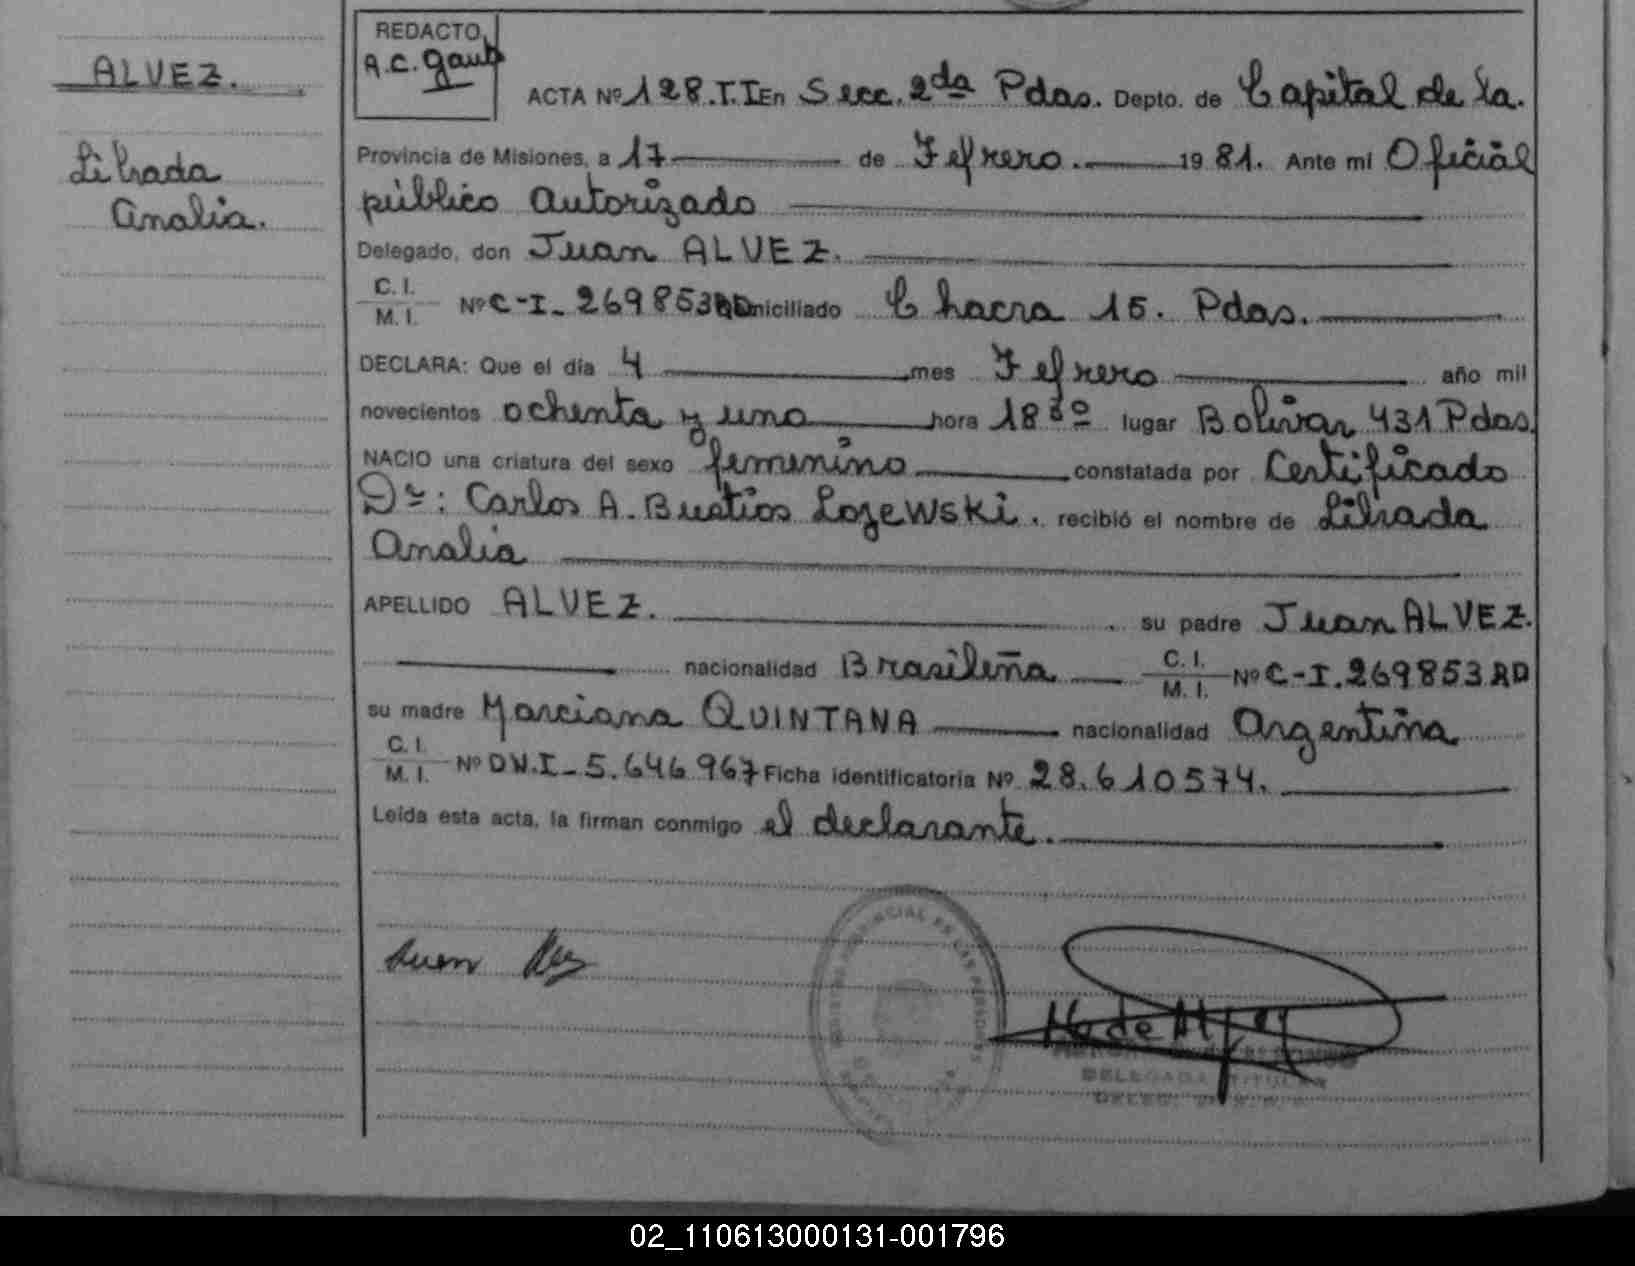 ALVEZ.
Librada
Analia.
REDACTO
A.C. Gaut
ACTA Nº 128.T.I En Secc. 2da Pdas. Depto. de Capital de la.
Provincia de Misiones, a 17 de Febrero. 1981. Ante mi Oficial
público Autorizado
Delegado, don Juan ALVEZ.
C. I.
M. I. Nº C-I- 269853 RD Domiciliado Chacra 15. Pdas.
DECLARA: Que el día 4 mes Febrero año mil
novecientos ochenta y uno hora 18 30 lugar Bolivar 431 Pdas.
NACIO una criatura del sexo femenino constatada por Certificado
Dr: Carlos A. Bustios Lozewski. recibió el nombre de Librada
Analia
APELLIDO ALVEZ. su padre Juan ALVEZ.
nacionalidad Brasileña C. I. M. I. Nº C-I.269853 RD
su madre Marciana QUINTANA nacionalidad Argentina
C. I.
M. I. Nº DN.I-5.646.967 Ficha identificatoria Nº 28.610574.
Leída esta acta, la firman conmigo el declarante.
DELEGADA TITULAR
02_110613000131-001796